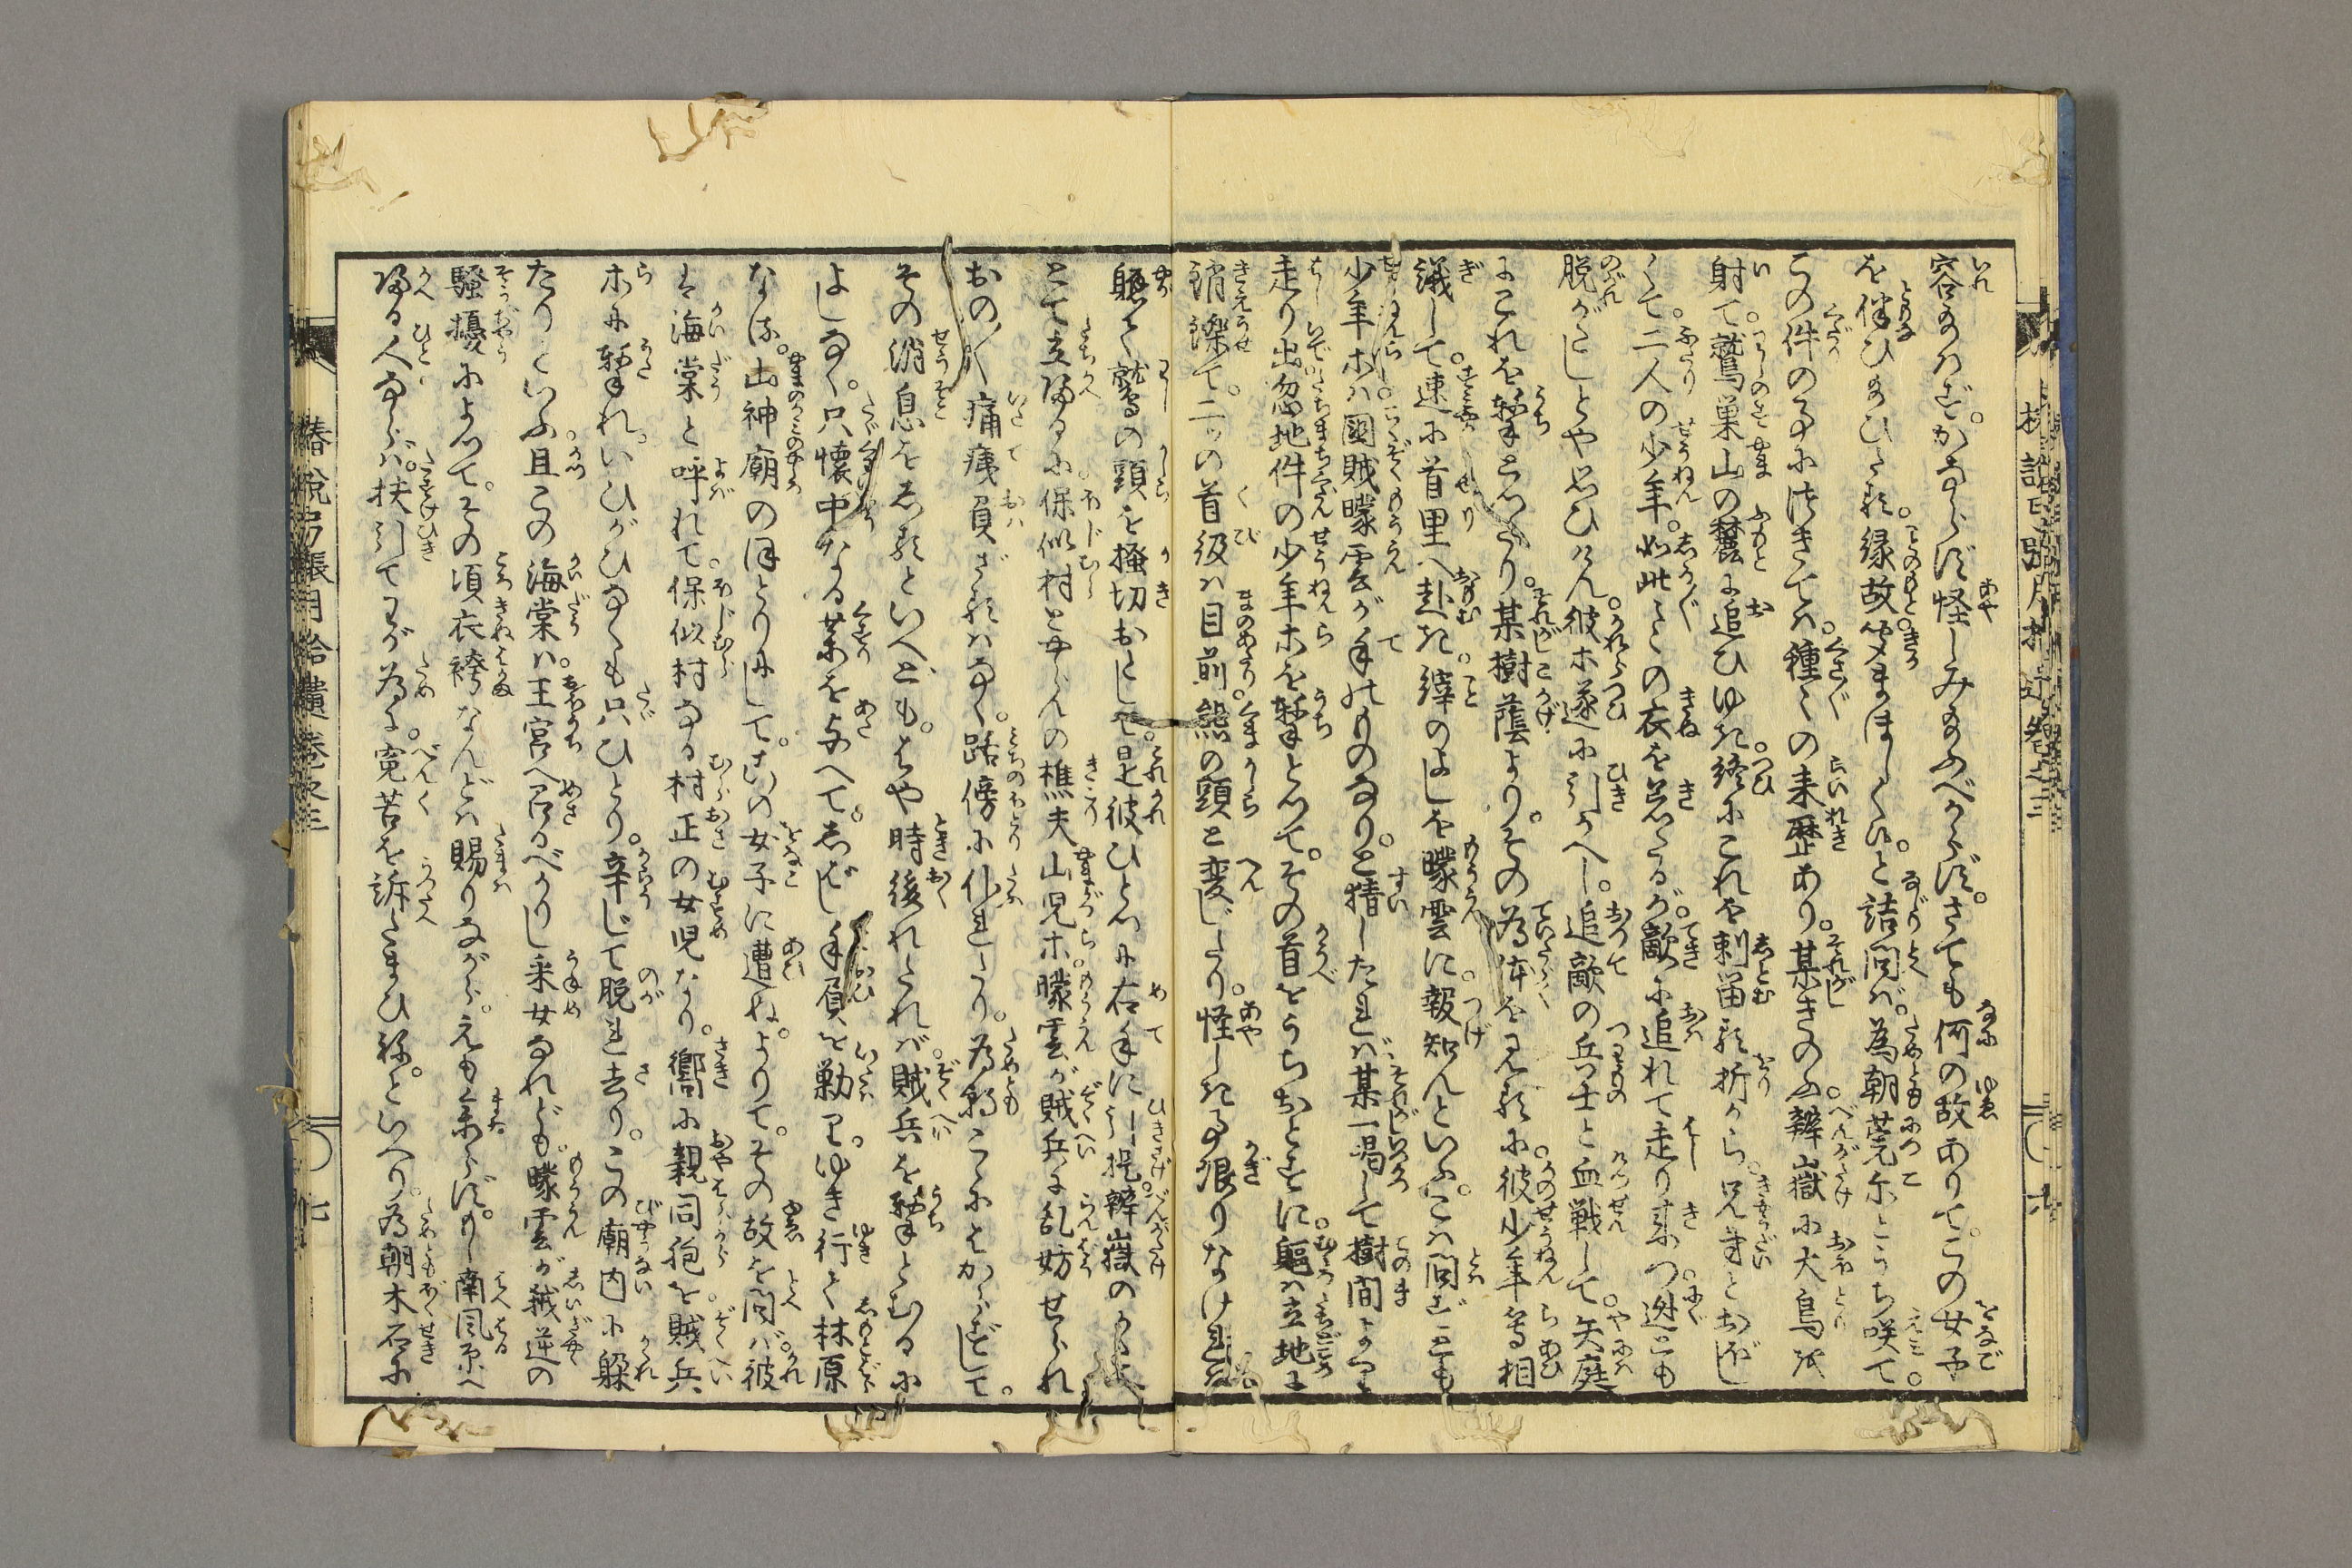 容給はず。かならず怪しみ給ふべからず。さても何の故ありて。この女子
を伴ひ給ひたる。縁故聞まほしく候。と詰問ば。為朝莞尓とうち咲て。
この件の事に付きては。種々の来歴あり。某きのふ辨嶽に大鳥を
射て。鷲巣山の麓に追ひゆき。終にこれを刺留る折から。兄弟とおぼし
くて。二人の少年。如此々々の衣を着たるが。敵に追れて走り来つ。迯とも
脱がたしとや思ひけん。彼ホ遂に引かへし。追敵の兵士と血戦して。矢庭
にこれを撃とつたり。某樹蔭より。その為体を見るに。彼少年等相
議して。速に首里へ赴き。縡のよしを曚雲に報知んといふ。こは問ずとも
少年ホは國賊曚雲が手のものなり。と猜したれば。某一喝して樹間より
走り出。忽地件の少年ホを撃とつて。その首をうちおとすに。軀は立地に
銷鑠て。二ッの首級は目前熊の頭と変じたり。怪しき事限りなければ。
軈て鷲の頭を掻切おとして。是彼ひとつに右手に引提。辨嶽の
とて立帰るに。保似村とやらんの樵夫山児ホ。曚雲が賊兵に乱妨せられ
おの／＼痛痍負ざるはなく。路傍に仆れたり。為朝こゝにはからずして。
その消息をしるといへども。はや時後れたれば。賊兵を撃とむるに
よしなく。只懐中なる薬を与へて。しばし手負を勦り。ゆき行く林原
なる。山神廟のほとりにして。この女子に遭ぬ。よりて。その故を問ば。彼
は海棠と呼れて。保似村なる村正の女児なり。嚮に親同胞を賊兵
ホに撃れ。いひがひなくも只ひとり。辛じて脱れ去り。この廟内に躱
たりといふ。且この海棠は。王宮へ召るべかりし采女なれども。曚雲が弑逆の
騒擾によつて。その項衣袴なんどは賜りながら。えも参らず。もし南風原へ
帰る人ならば。扶引てわが為に。寃苦を訴たまひね。といへり。為朝木石に
椿説弓張月拾遺巻之三
七